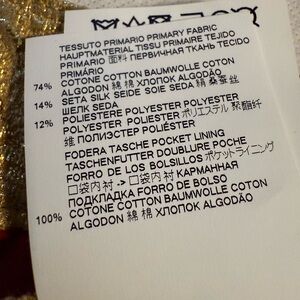 TESSUTO PRIMARIO PRIMARY FABRIC
HAUPTMATERIAL TISSU PRIMAIRE TEJIDO
PRIMARIO 面料 ПЕРВИЧНАЯ ТКАНЬ TECIDO
PRIMÁRIO
74% COTONE COTTON BAUMWOLLE COTON
ALGODON 綿 棉 ХЛОПОК ALGODÃO
14% SETA SILK SEIDE SOIE SEDA 絹 桑蚕丝
ШЕЛК SEDA
12% POLIESTERE POLYESTER POLYESTER
POLYESTER POLIESTER ポリエステル 聚酯纤
维 ПОЛИЭСТЕР POLIÉSTER
FODERA TASCHE POCKET LINING
TASCHENFUTTER DOUBLURE POCHE
FORRO DE LOS BOLSILLOS ポケットライニング
口袋内衬 -> 口袋内衬 КАРМАННАЯ
ПОДКЛАДКА FORRO DE BOLSO
100% COTONE COTTON BAUMWOLLE COTON
ALGODON 綿 棉 ХЛОПОК ALGODÃO